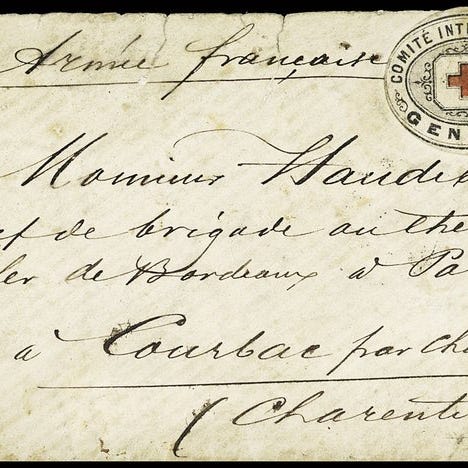 Armée française
COMITÉ INTE
GEN
Monsieur
ef de brigade au che
fer de Bordeaux à Pa
à Courbac par Cha
(Charente